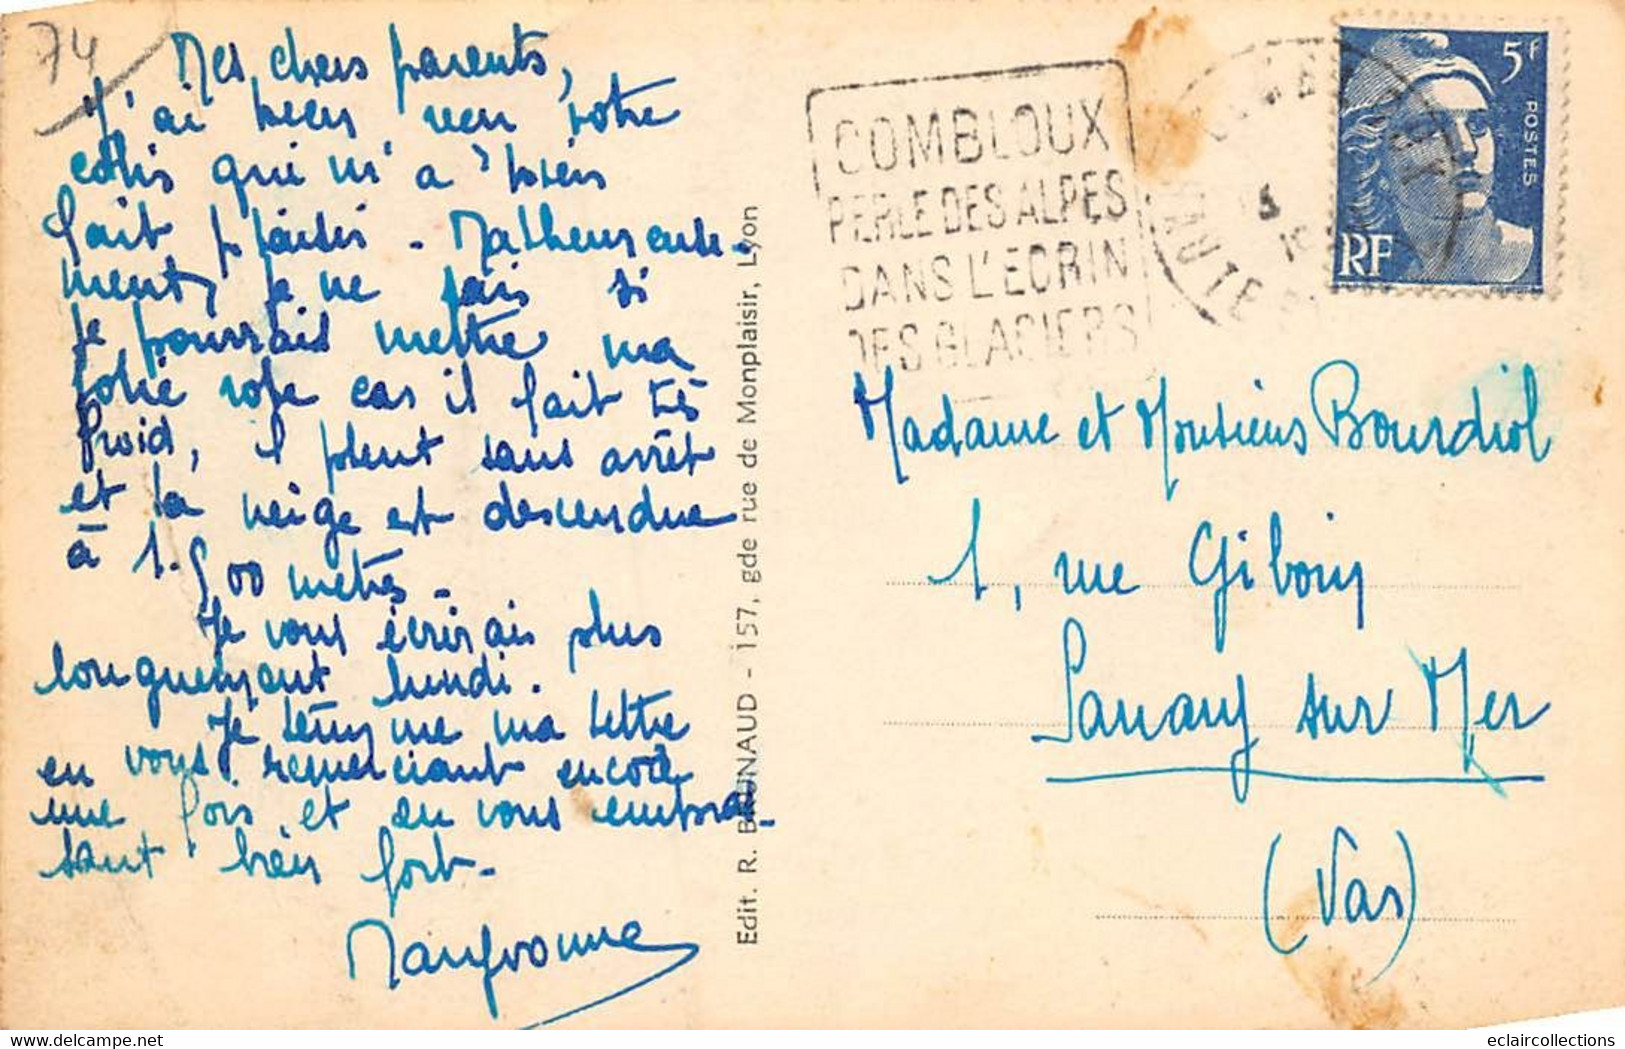 74
Mes chers parents,
J'ai bien reçu votre
colis qui m'a bien
fait plaisir - Malheureuse-
ment, je ne sais si
je pourrais mettre ma
jolie robe car il fait très
froid, il pleut sans arrêt
et la neige est descendue
à 1.500 mètres -
Je vous écrirais plus
longuement lundi.
Je termine ma lettre
en vous remerciant encore
une fois et en vous embras-
sant bien fort -
Edit. R. BRUNAUD - 157, gde rue de Monplaisir, Lyon
COMBLOUX
PERLE DES ALPES
DANS L'ECRIN
DES GLACIERS
5f
POSTES
RF
Madame et Monsieur Bourdiol
1, rue Giboin
Sanary sur Mer
(Var)
eclaircollections